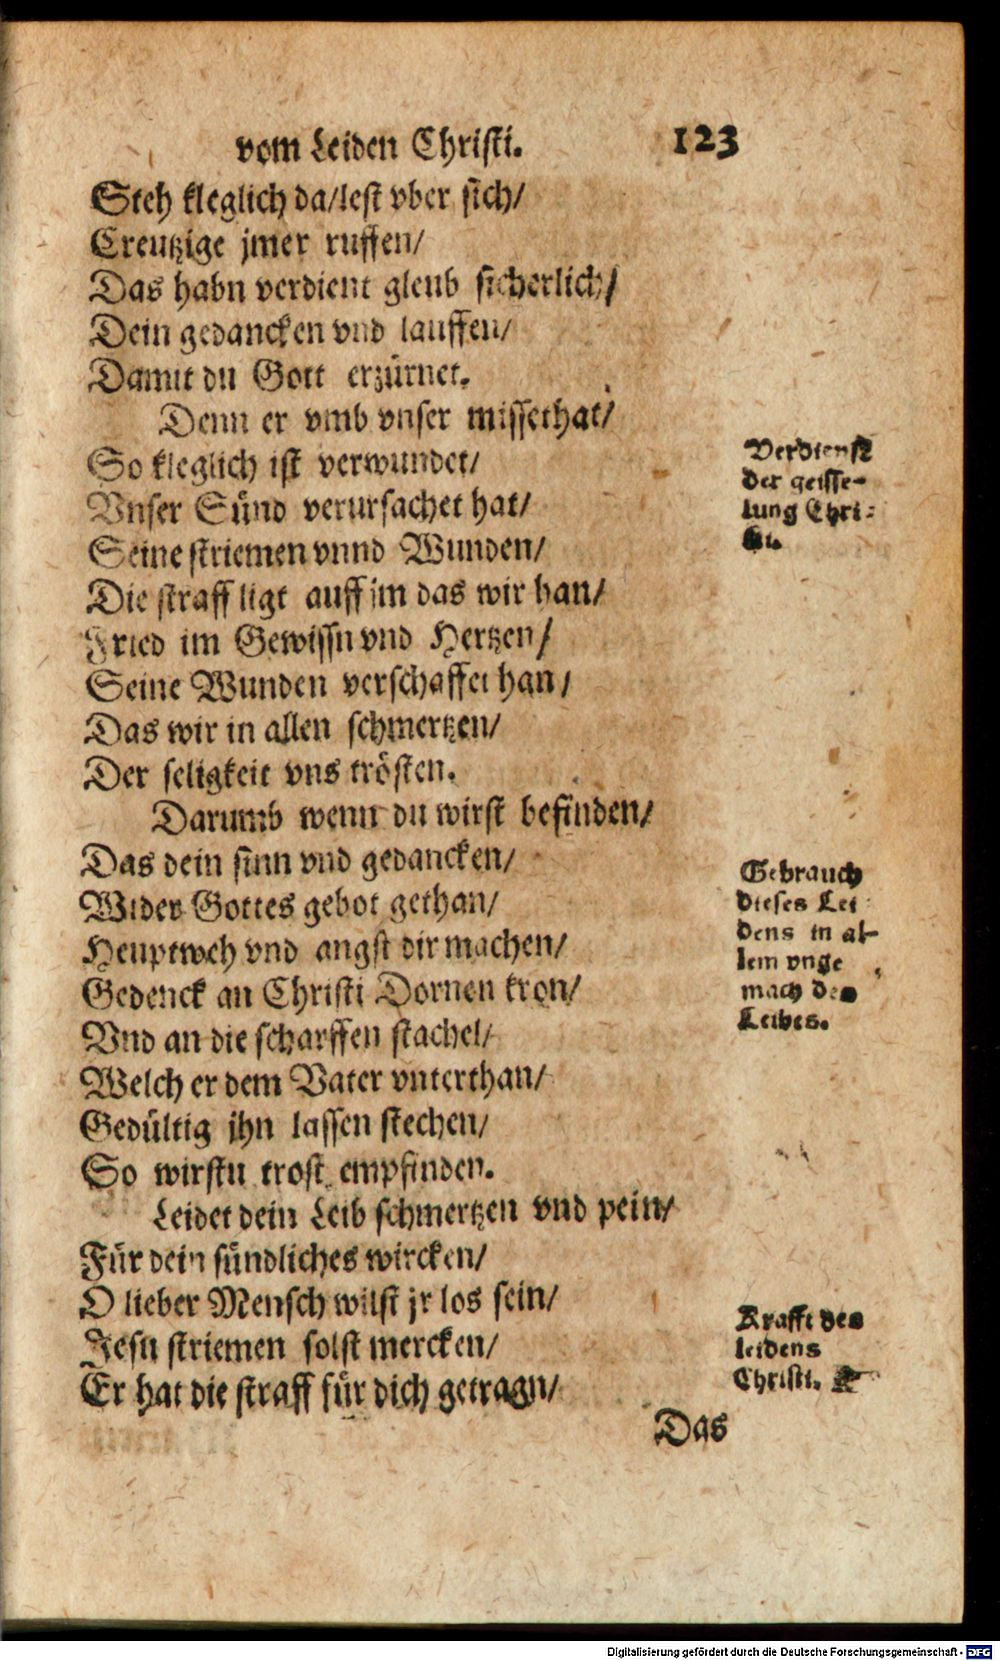 vom Leiden Christi. 123
Steh kleglich da/lest vber sich/
Creutzige jmer ruffen/
Das habn verdient gleub sicherlich/
Dein gedancken vnd lauffen/
Damit du Gott erzürnet.
Denn er vmb vnser missethat/
So kleglich ist verwundet/
Vnser Sünd verursachet hat/
Seine striemen vnnd Wunden/
Die straff ligt auff jm das wir han/
Fried im Gewissn vnd Hertzen/
Seine Wunden verschaffet han/
Das wir in allen schmertzen/
Der seligkeit vns trösten.
Darumb wenn du wirst befinden/
Das dein sinn vnd gedancken/
Wider Gottes gebot gethan/
Heuptweh vnd angst dir machen/
Gedenck an Christi Dornen kron/
Vnd an die scharffen stachel/
Welch er dem Vater vnterthan/
Gedültig jhn lassen stechen/
So wirstu trost empfinden.
Leidet dein Leib schmertzen vnd pein/
Für dein sündliches wircken/
O lieber Mensch wilst jr los sein/
Jesu striemen solst mercken/
Er hat die straff für dich getragn/
Das
Verdienst
der geisse-
lung Chri-
sti.
Gebrauch
dieses Lei
dens in al-
lem vnge
mach des
Leibes.
Krafft des
leidens
Christi.
Digitalisierung gefördert durch die Deutsche Forschungsgemeinschaft - DFG